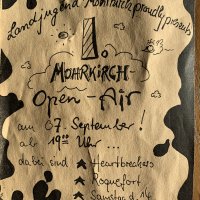 Landjugend Mohrkirch proudly presents
1.
MOHRKIRCH-
Open-Air
am 07. September!
ab 19⁰⁰ Uhr...
dabei sind Heartbreakers
Roquefort
Samstag d. 14